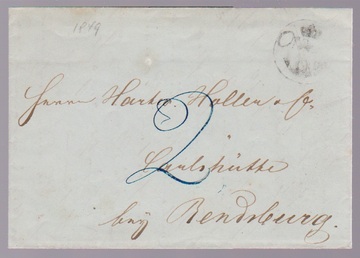 1849
Herrn Hartw. Holler & Co.
2
Carlshütte
bey Rendsburg.